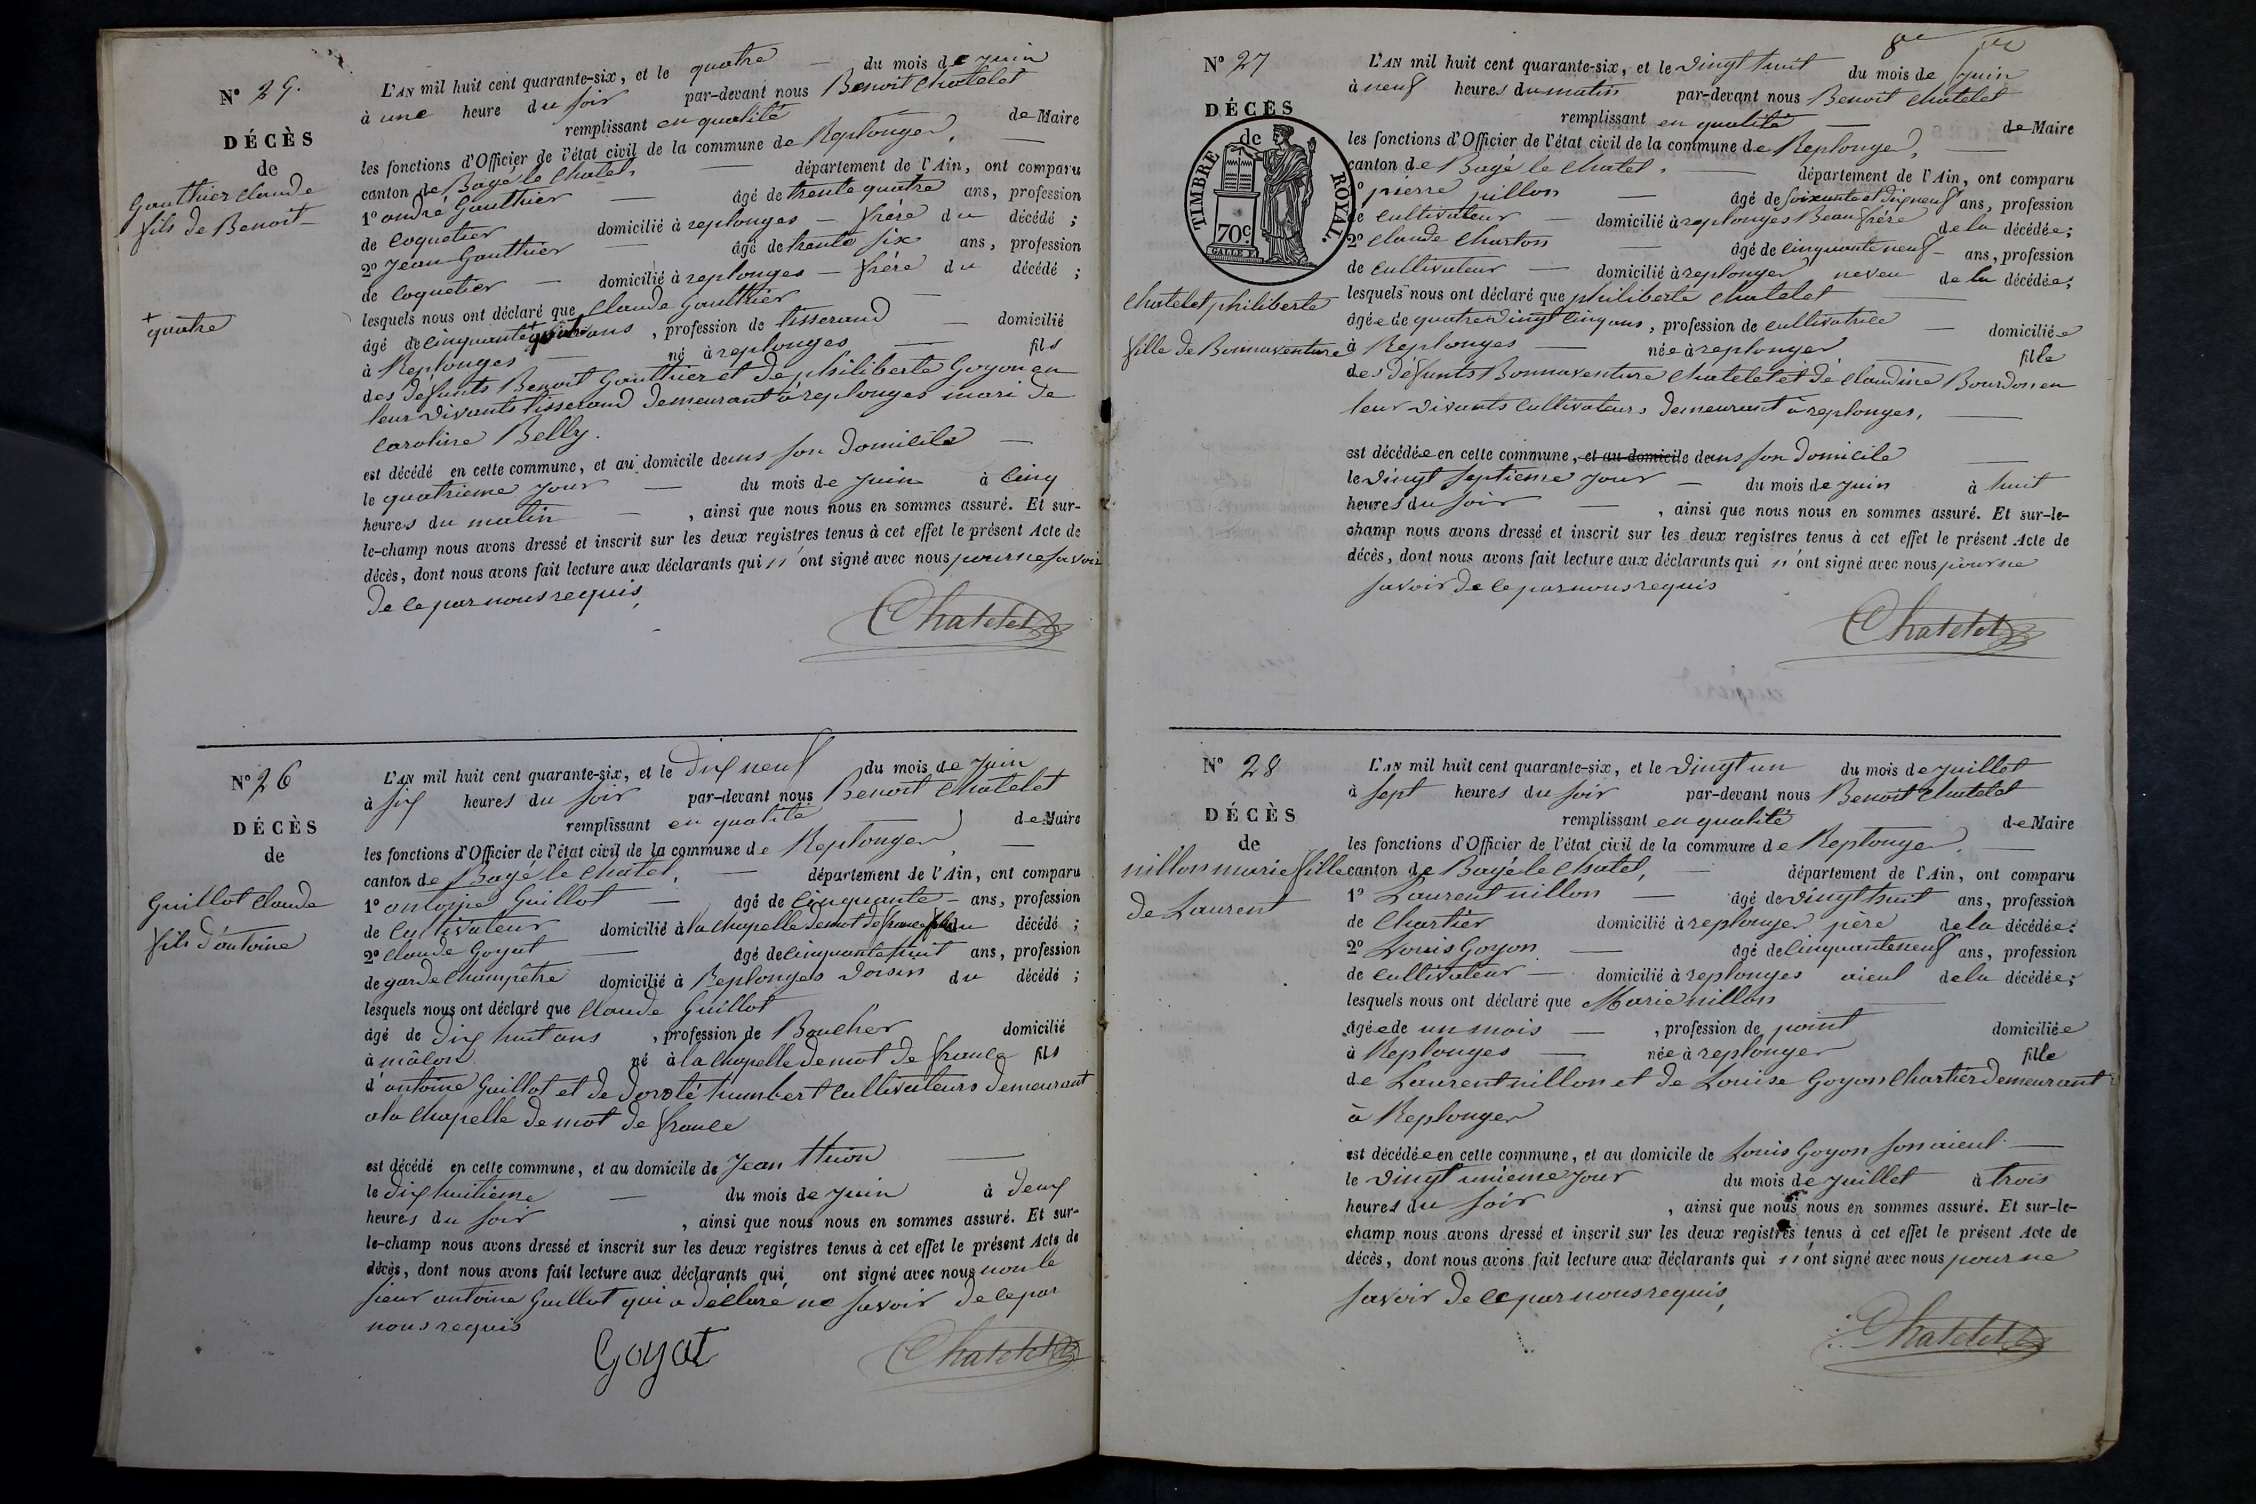 N° 25.
DÉCÈS
de
Gauthier Claude
fils de Benoit
+
quatre
L'AN mil huit cent quarante-six, et le quatre — du mois de juin
à une heure du soir par-devant nous Benoit Chatelet
remplissant en qualité de Maire
les fonctions d'Officier de l'état civil de la commune de Replonges, —
canton de Bagé le Chatel, — département de l'Ain, ont comparu
1° andré Gauthier — âgé de trente quatre ans, profession
de Coquetier domicilié à replonges — frère du décédé ;
2° Jean Gauthier — âgé de trente six ans, profession
de Coquetier — domicilié à replonges — frère du décédé ;
lesquels nous ont déclaré que Claude Gauthier —
âgé de cinquante + ans, profession de tisserand — domicilié
à Replonges — né à replonges — fils
des défunts Benoit Gauthier et de philiberte Goyon en
leur vivants tisserand demeurant à replonges mari de
Caroline Belly.
est décédé en cette commune, et au domicile dans son domicile —
le quatrieme jour — du mois de juin à cinq
heures du matin — , ainsi que nous nous en sommes assuré. Et sur-
le-champ nous avons dressé et inscrit sur les deux registres tenus à cet effet le présent Acte de
décès, dont nous avons fait lecture aux déclarants qui n'ont signé avec nous pour ne savoir
de ce par nous requis,
Chatelet
N° 26
DÉCÈS
de
Guillot Claude
fils d'antoine
L'AN mil huit cent quarante-six, et le dix neuf du mois de juin
à six heures du soir par-devant nous Benoit Chatelet
remplissant en qualité de Maire
les fonctions d'Officier de l'état civil de la commune de Replonges, —
canton de Bagé le Chatel, — département de l'Ain, ont comparu
1° antoine Guillot — âgé de cinquante — ans, profession
de Cultivateur domicilié à la chapelle demot de france du décédé ;
2° Claude Goyat — âgé de cinquante huit ans, profession
de garde Champêtre domicilié à Replonges voisin du décédé ;
lesquels nous ont déclaré que Claude Guillot
âgé de dix huit ans , profession de Boucher domicilié
à mâcon né à la chapelle demot de france fils
d'antoine Guillot et de doroté humbert cultivateurs demeurant
a la Chapelle demot de france
est décédé en cette commune, et au domicile de Jean thion —
le dix huitieme — du mois de juin à deux
heures du soir , ainsi que nous nous en sommes assuré. Et sur-
le-champ nous avons dressé et inscrit sur les deux registres tenus à cet effet le présent Acte de
décès, dont nous avons fait lecture aux déclarants qui ont signé avec nous non le
sieur antoine Guillot qui a déclaré ne savoir de ce par
nous requis
Goyat
Chatelet
N° 27
DÉCÈS
de
TIMBRE ROYAL.
70c
Chatelet philiberte
fille de Bonnaventure
L'AN mil huit cent quarante-six, et le vingt huit du mois de juin
à neuf heures du matin par-devant nous Benoit Chatelet
remplissant en qualité — de Maire
les fonctions d'Officier de l'état civil de la commune de Replonges, —
canton de Bagé le Chatel, — département de l'Ain, ont comparu
1° pierre nillon — âgé de soixante et dix neuf ans, profession
de Cultivateur — domicilié à replonges Beau frère de la décédée ;
2° Claude Charton — âgé de cinquante neuf — ans, profession
de cultivateur — domicilié à replonges neveu de la décédée ;
lesquels nous ont déclaré que philiberte Chatelet —
âgée de quatre vingt cinq ans, profession de cultivatrice — domiciliée
à Replonges — née à replonges — fille
des défunts Bonnaventure Chatelet et de Claudine Bourdon en
leur vivants Cultivateurs demeurant à replonges, —
est décédée en cette commune, et au domicile dans son domicile —
le vingt septieme jour — du mois de juin à huit
heures du soir — , ainsi que nous nous en sommes assuré. Et sur-le-
champ nous avons dressé et inscrit sur les deux registres tenus à cet effet le présent Acte de
décès, dont nous avons fait lecture aux déclarants qui n'ont signé avec nous pour ne
savoir de ce par nous requis
Chatelet
N° 28
DÉCÈS
de
nillon marie fille
de Laurent
L'AN mil huit cent quarante-six, et le vingt un du mois de juillet
à sept heures du soir par-devant nous Benoit Chatelet
remplissant en qualité de Maire
les fonctions d'Officier de l'état civil de la commune de Replonges, —
canton de Bagé le Chatel, — département de l'Ain, ont comparu
1° Laurent nillon — âgé de vingt huit ans, profession
de Chartier domicilié à replonges père de la décédée ;
2° Louis Goyon — âgé de cinquante neuf ans, profession
de cultivateur — domicilié à replonges aieul de la décédée ;
lesquels nous ont déclaré que Marie nillon —
âgée de un mois — , profession de point domiciliée
à Replonges — née à replonges fille
de Laurent nillon et de Louise Goyon Chartier demeurant
à Replonges
est décédée en cette commune, et au domicile de Louis Goyon son aieul —
le vingt unieme jour du mois de juillet à trois
heures du soir , ainsi que nous nous en sommes assuré. Et sur-le-
champ nous avons dressé et inscrit sur les deux registres tenus à cet effet le présent Acte de
décès, dont nous avons fait lecture aux déclarants qui n'ont signé avec nous pour ne
savoir de ce par nous requis,
Chatelet